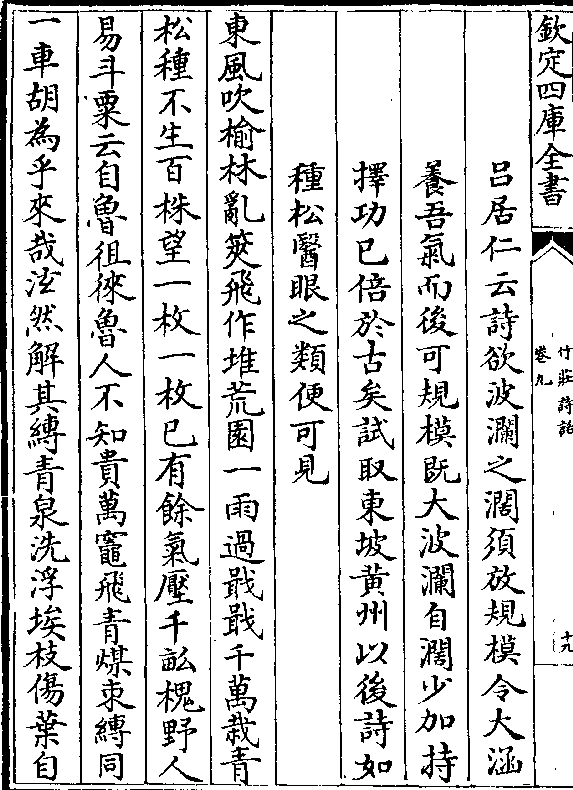 欽定四庫全書
竹莊詩話
卷九
十九
呂居仁云詩欲波瀾之濶須放規模令大涵
養吾氣而後可規模既大波瀾自濶少加持
擇功已倍於古矣試取東坡黄州以後詩如
種松醫眼之類便可見
東風吹榆林亂莢飛作堆荒園一雨過戢戢千萬栽青
松種不生百株望一枚一枚已有餘氣壓千畝槐野人
易斗粟云自魯徂徠魯人不知貴萬竈飛青煤束縛同
一車胡為乎來哉泫然解其縛青泉洗浮埃枝傷葉自